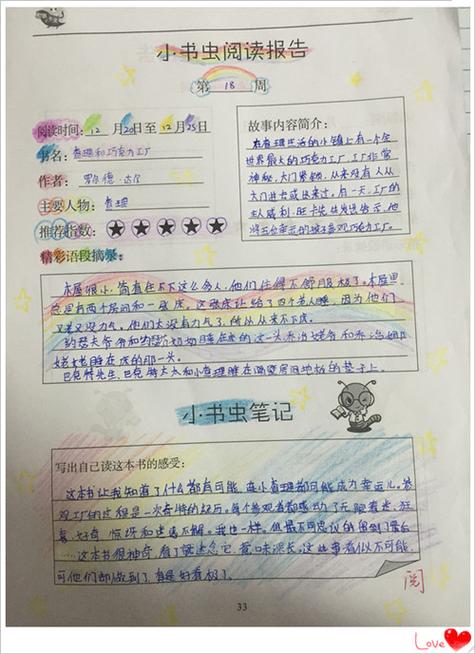 小书虫阅读报告
第 18 周
阅读时间：12 月20日至 12月25日
书名：查理和巧克力工厂
作者：罗尔德·达尔
主要人物：查理
推荐指数：
精彩语段摘录：
故事内容简介：
在查理生活的小镇上有一个全
世界最大的巧克力工厂，工厂非常
神秘，大门紧锁，从来没有人从
大门进去或出来过。有一天，工厂的
主人威利·旺卡先生发出告示，他
将五个幸运的孩子参观巧克力工厂。
木屋很小，简直住不下这么多人，他们住得不舒服极了。木屋里
总共有两个房间和一张床。这张床让给了四个老人睡，因为他们
又老又没力气。他们太没有力气了，所以从来不下床。
约瑟夫爷爷和约瑟芬奶奶睡在床的这一头，乔治姥爷和乔治娜
姥姥睡在床的那一头。
巴克特先生、巴克特太太和小查理睡在隔壁房间地板的垫子上。
小书虫笔记
写出自己读这本书的感受：
这本书让我知道了什么都有可能，连小查理都可能成为幸运儿。参
观工厂的过程是一次奇特的经历，每个参观者都感动了无
好奇、惊讶和迷惑不解。我也一样。但最不可思议的
这本书很神奇，看了就难忘它，意味深长。这些事看似不可能，
可他们却做到了，真是好看极了。
阅
33
Love